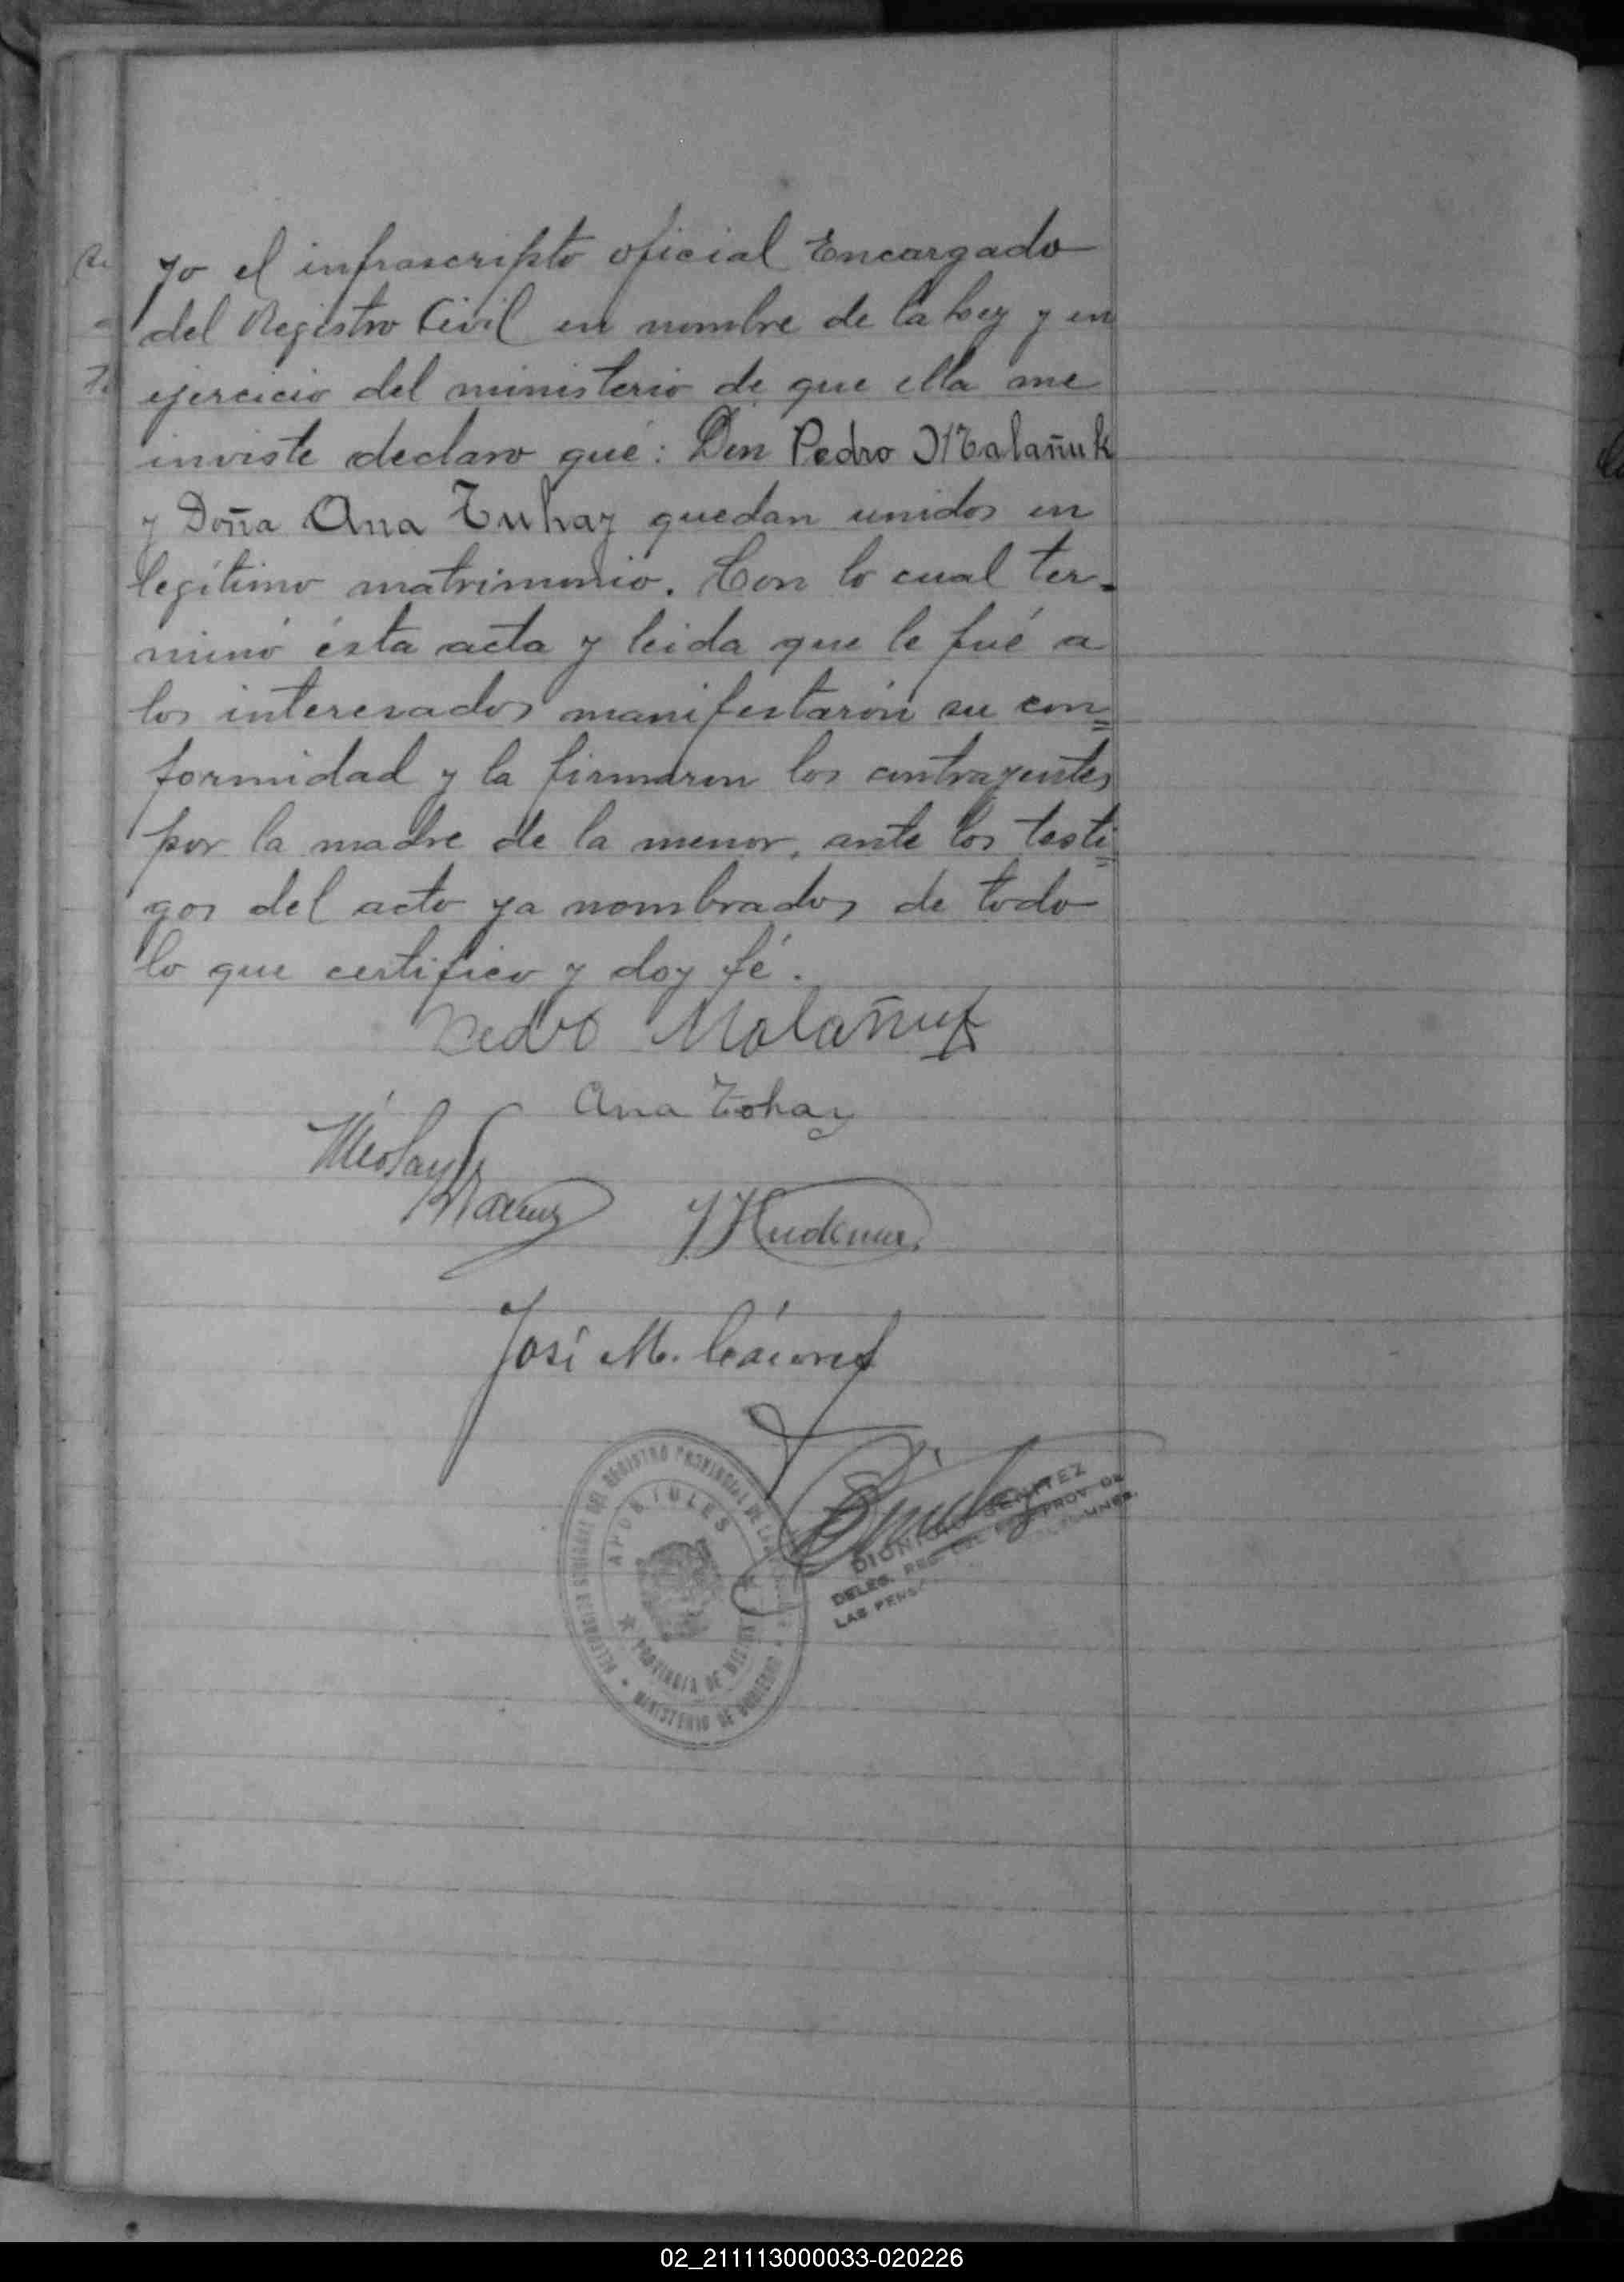 yo el infrascripto oficial Encargado
del Registro Civil en nombre de la Ley y en
ejercicio del ministerio de que ella me
inviste declaro que: Don Pedro Malañuk
y Doña Ana Tuhaz quedan unidos en
legítimo matrimonio. Con lo cual ter-
minó ésta acta y leida que le fué a
los interesados manifestarón su con=
formidad y la firmaron los contrayentes
por la madre de la menor, ante los testi=
gos del acto ya nombrados de todo
lo que certifico y doy fé.
Pedro Malañuk
Ana Tohaz
José M.
DELEGACION SECCIONAL DEL REGISTRO PROVINCIAL DE LAS PERSONAS
APOSTOLES
PROVINCIA DE MISIONES
MINISTERIO DE GOBIERNO
DIONISIO BENITEZ
DELEG. REG. DEL PROV. DE
LAS PERS.
02_211113000033-020226